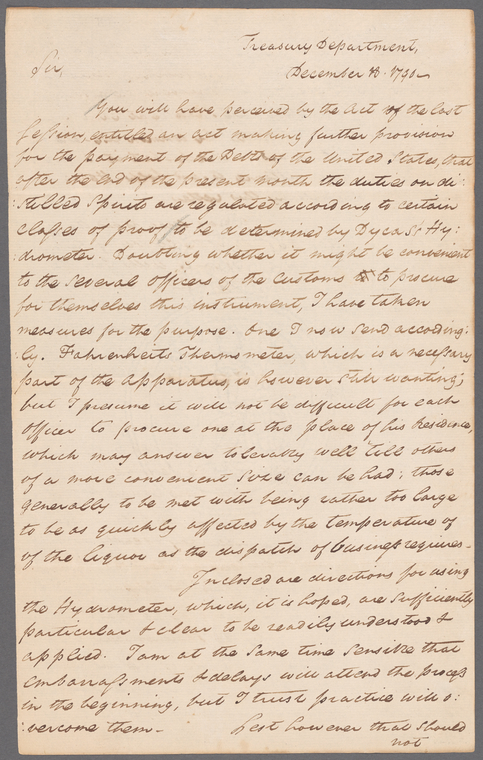 Treasury Department,
Sir,
December 18. 1790
You will have perceived by the Act of the last
Session, entitled an act making further provision
for the payment of the Debts of the United States, that
after the end of the present month the duties on di:
:stilled Spirits are regulated according to certain
Classes of proof, to be determined by Dycas's Hy:
:drometer. Doubting whether it might be convenient
to the several officers of the Customs to procure
for themselves this instrument, I have taken
measures for the purpose. One I now send according:
:ly. Fahrenheits Thermometer, which is a necessary
part of the apparatus, is however still wanting;
but I presume it will not be difficult for each
officer to procure one at the place of his Residence,
which may answer tolerably well till others
of a more convenient Size can be had: those
generally to be met with being rather too large
to be as quickly affected by the temperature of
of the liquor as the dispatch of business requires-
Inclosed are directions for using
the Hydrometer, which, it is hoped, are sufficiently
particular & clear to be readily understood &
applied. I am at the same time sensible that
embarrassments & delays will attend the process
in the beginning, but I trust practice will o:
:vercome them-
Lest however that should
not